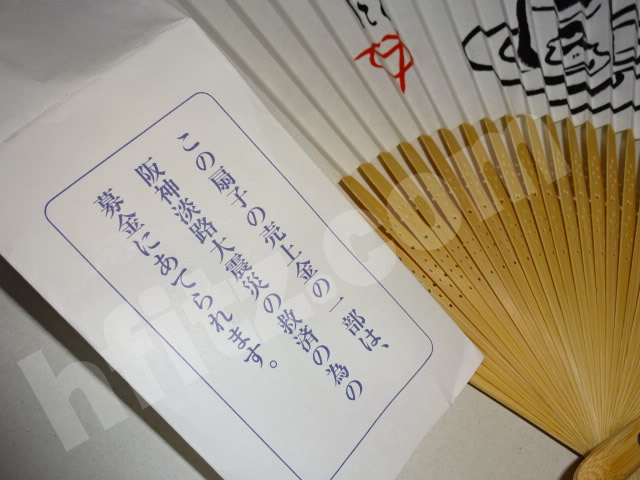 この扇子の売上金の一部は、
阪神淡路大震災の救済の為の
募金にあてられます。
hfitz.com